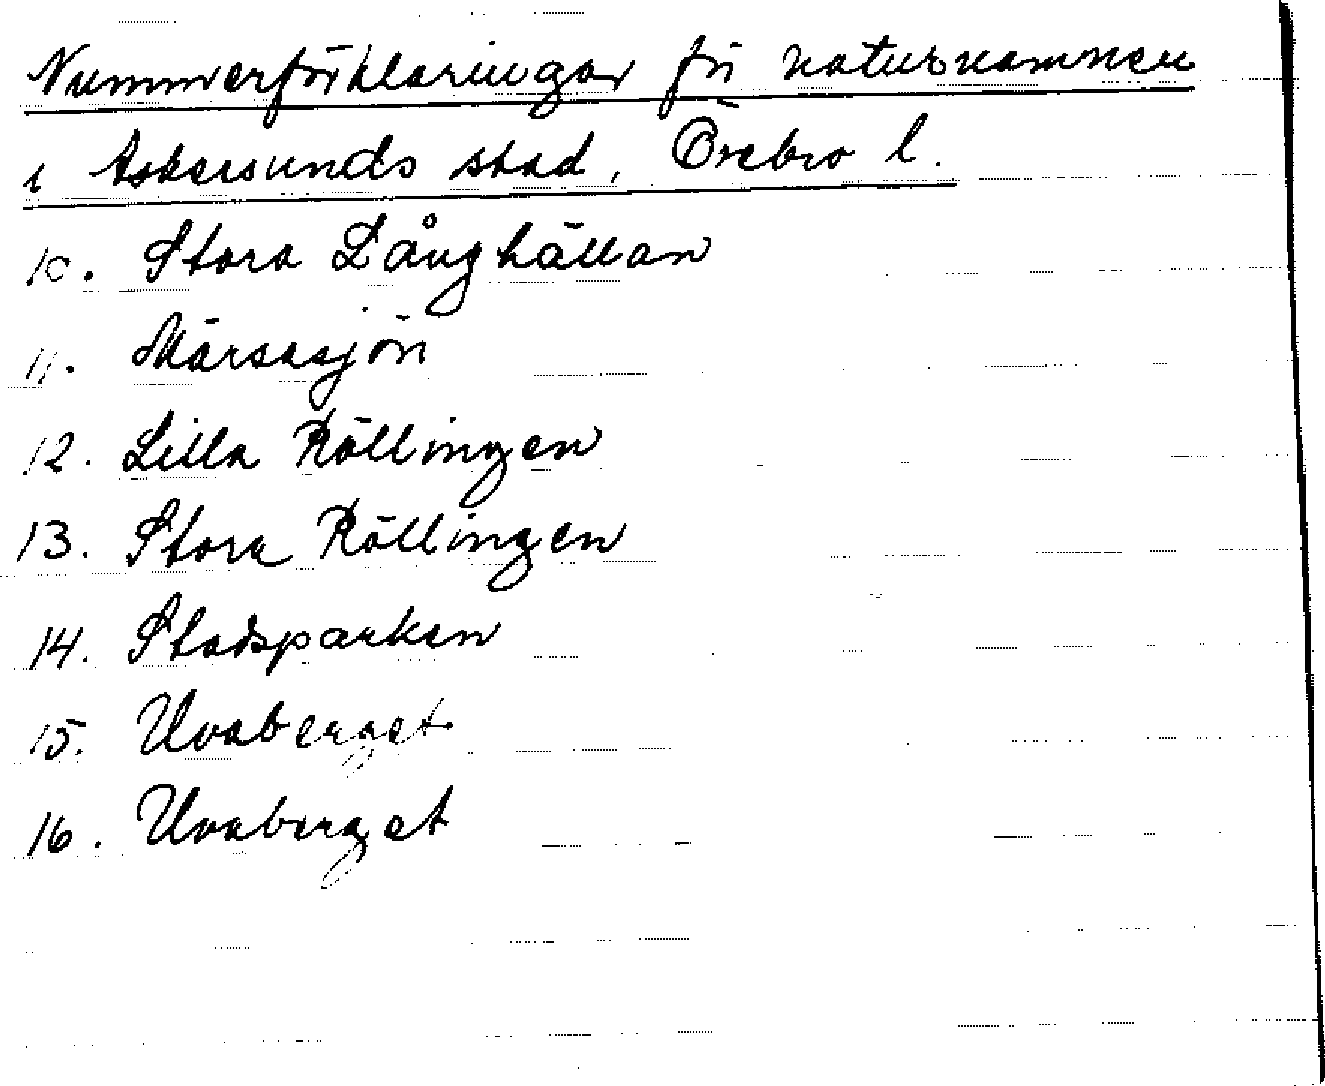 Nummerförklaringar för naturnamnen
i Askersunds stad, Örebro l.
10. Stora Långhällan
11. Märsasjön
12. Lilla Röllingen
13. Stora Röllingen
14. Stadsparken
15. Uvaberget
16. Uvaberget